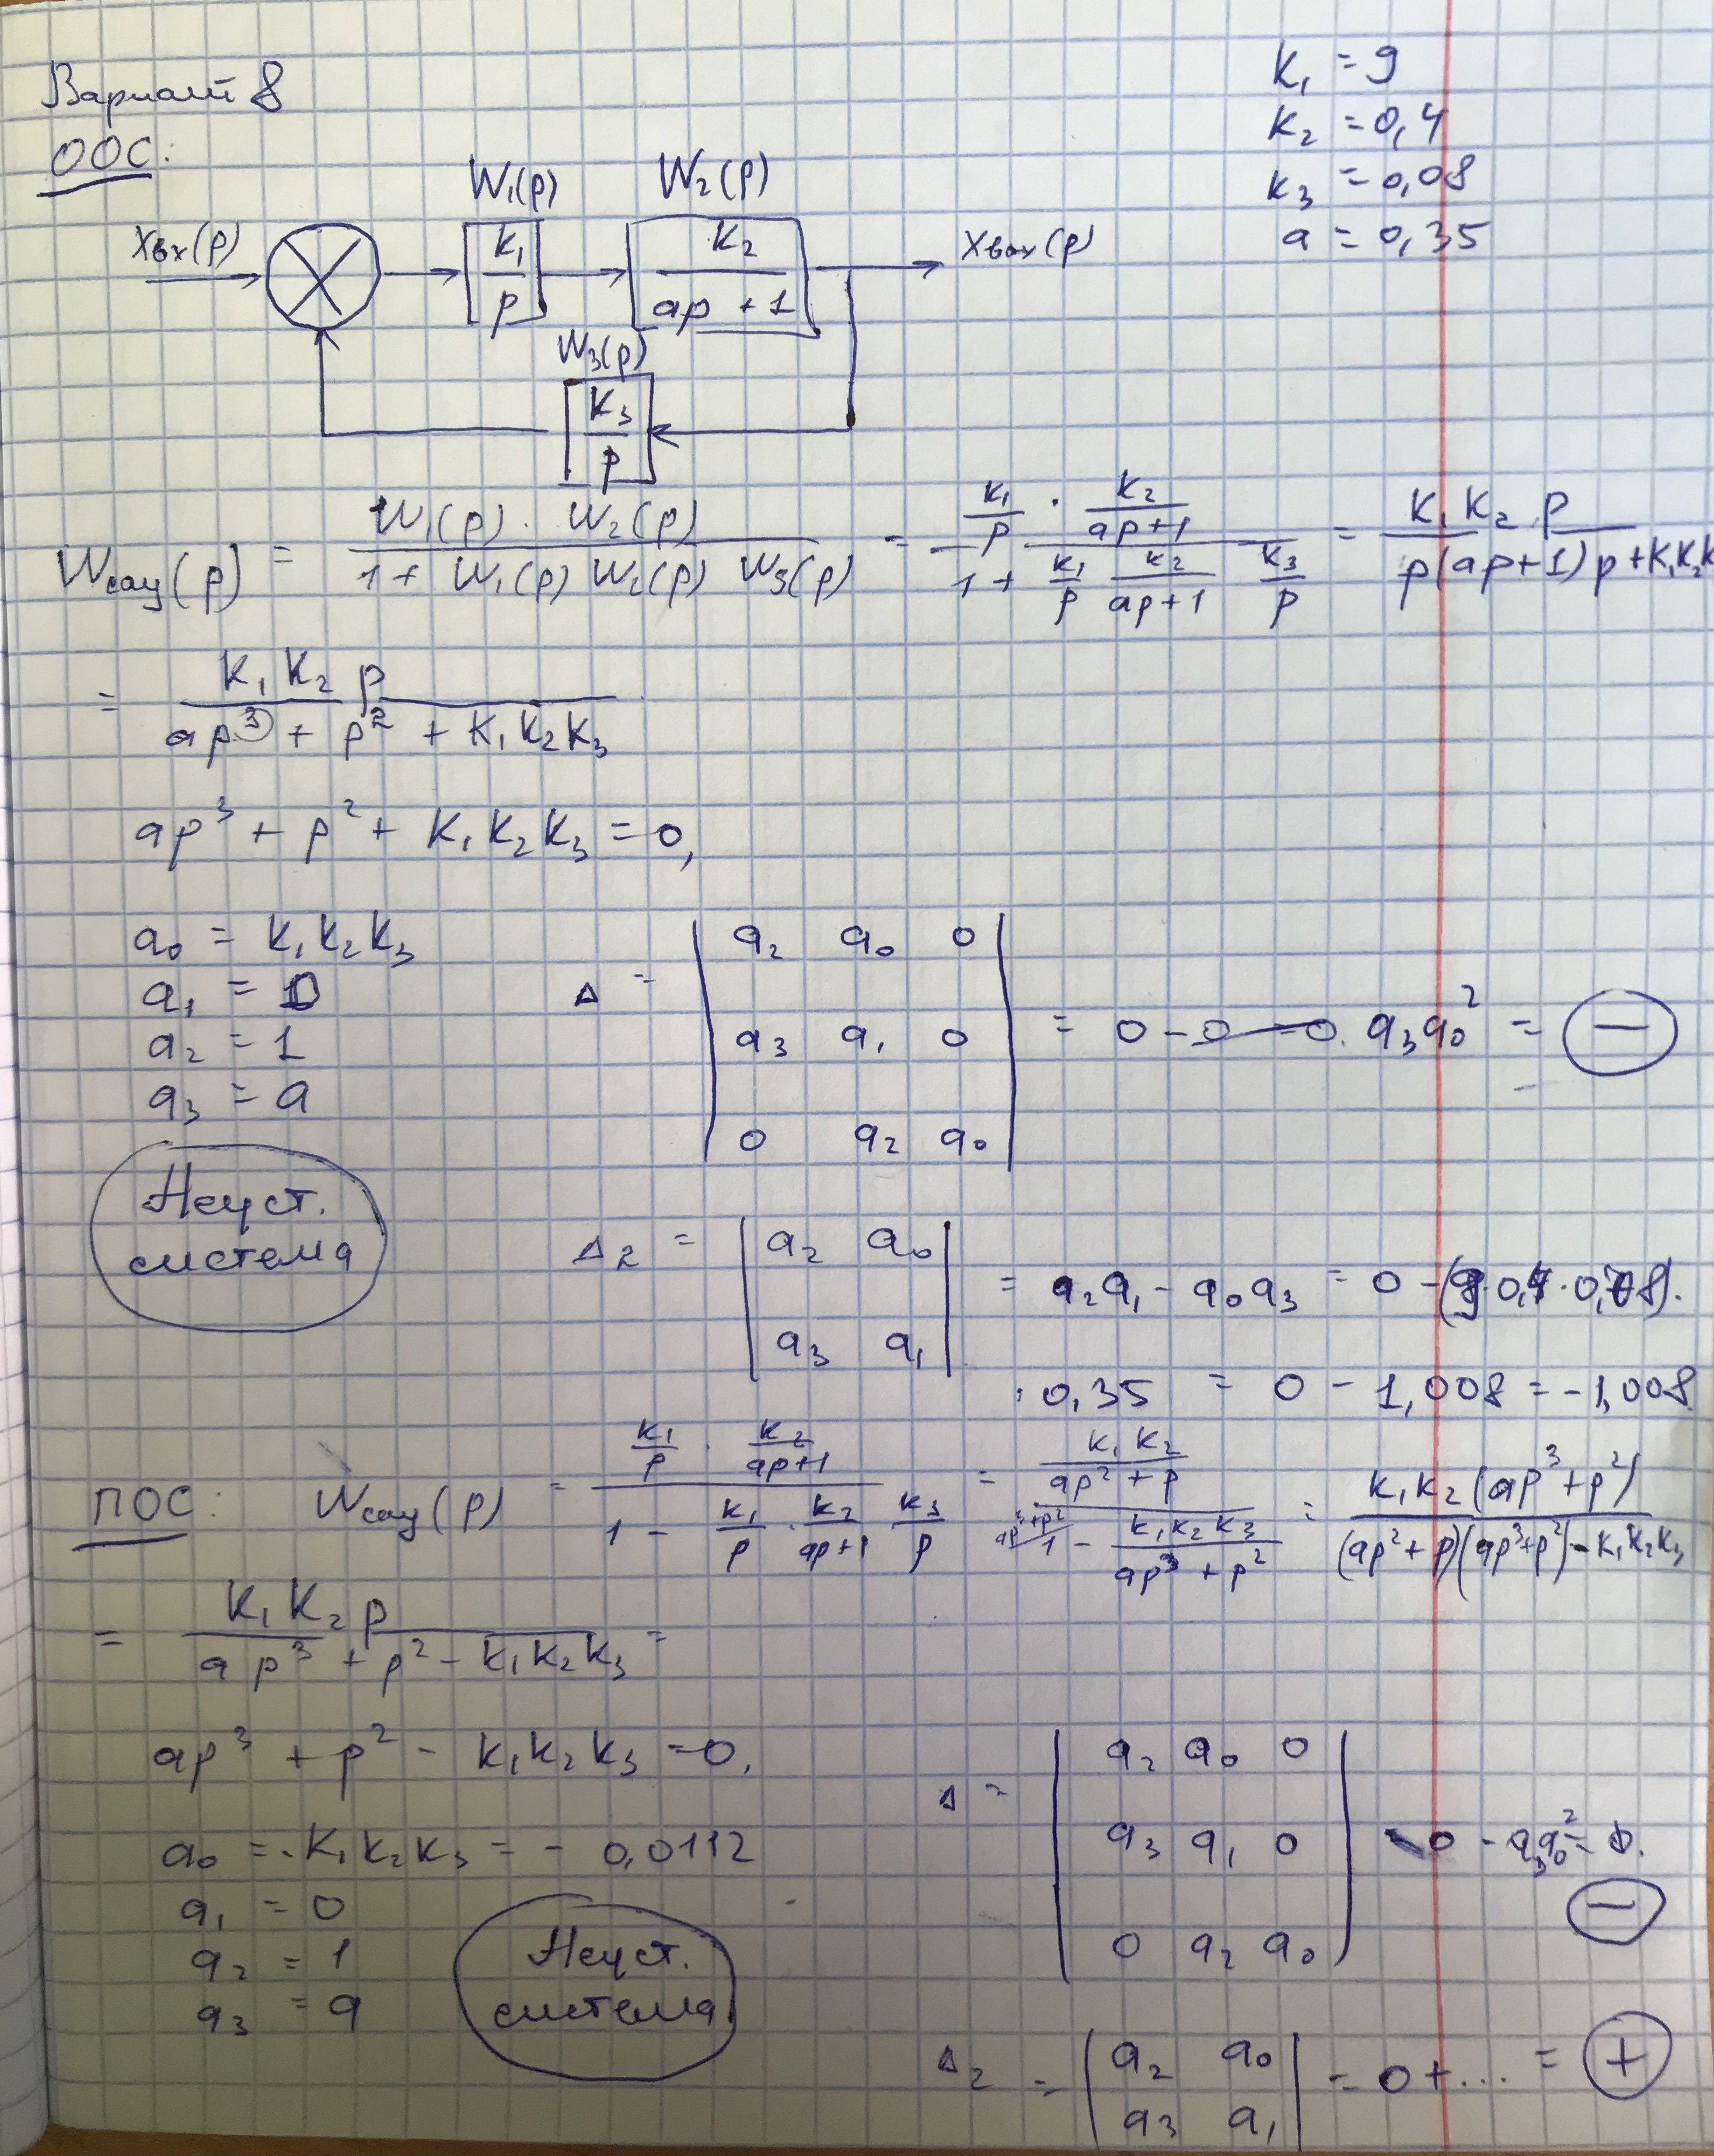 Вариант 8
K₁ = 9
K₂ = 0,4
K₃ = 0,08
a = 0,35
ООС:
W₁(p) W₂(p)
Xвх(p) K₁/p K₂/(ap + 1) Xвых(p)
W₃(p)
K₃/p
Wсау(p) = (W₁(p) · W₂(p))/(1 + W₁(p) W₂(p) W₃(p)) = (K₁/p · K₂/(ap+1))/(1 + K₁/p K₂/(ap+1) K₃/p) = (K₁ K₂ p)/(p(ap+1)p + K₁K₂K
= (K₁ K₂ p)/(ap³ + p² + K₁K₂K₃)
ap³ + p² + K₁K₂K₃ = 0,
a₀ = K₁K₂K₃
a₁ = 0
a₂ = 1
a₃ = a
Δ = | a₂ a₀ 0 |
| a₃ a₁ 0 | = 0 - 0 - 0. a₃a₀² = ⊖
| 0 a₂ a₀ |
Неуст.
система
Δ₂ = | a₂ a₀ |
| a₃ a₁ | = a₂a₁ - a₀a₃ = 0 - (9·0,4·0,08).
·0,35 = 0 - 1,008 = -1,008
ПОС: Wсау(p) = (K₁/p · K₂/(ap+1))/(1 - K₁/p · K₂/(ap+1) K₃/p) = (K₁K₂/(ap² + p))/(1 - K₁K₂K₃/(ap³ + p²)) = (K₁K₂(ap³+p²))/((ap²+p)(ap³+p²) - K₁K₂K₃
= (K₁K₂p)/(ap³ + p² - K₁K₂K₃) =
ap³ + p² - K₁K₂K₃ = 0,
a₀ = -K₁K₂K₃ = - 0,0112
a₁ = 0
a₂ = 1
a₃ = a
Неуст.
система
Δ = | a₂ a₀ 0 |
| a₃ a₁ 0 | 0 - a₃a₀² =
| 0 a₂ a₀ |
⊖
Δ₂ = | a₂ a₀ |
| a₃ a₁ | = 0 + ... = ⊕